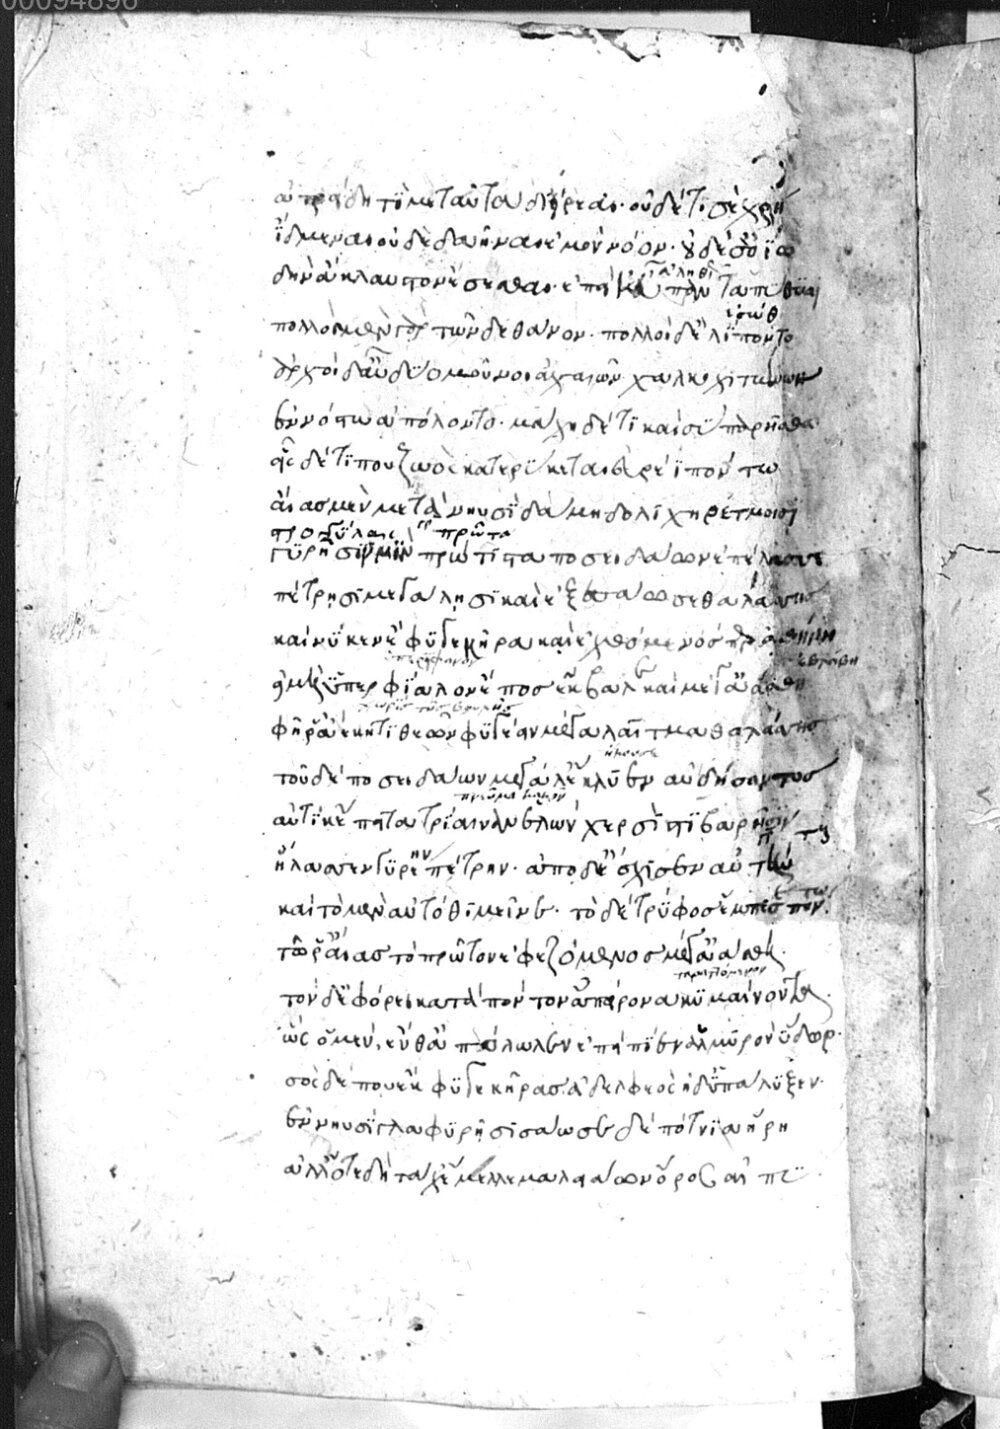 ἀτρείδη τί με ταῦτα διείρεαι· οὐδέ τί σε χρὴ
ἴδμεναι οὐδὲ δαῆναι ἐμὸν νόον· οὐδέ σὅϊω
δὴν ἄκλαυτον ἔσεσθαι· ἐπὴν εὖ πάντα πύθηαι
πολλοὶ μὲν γὰρ τῶνδε θάνον· πολλοὶ δὲ λίποντο
ἀρχοὶ δαῦ δύο μοῦνοι ἀχαιῶν χαλκοχιτώνων
ἐν νόστω ἀπόλοντο· μάχη δέ τι καὶ σὺ παρῆσθα
εἷς δέτι που ζωὸς κατερύκεται εὐρέϊ πόντω
αἴας μὲν μετὰ νηυσὶ δάμη δολιχηρέτμοισι
πρῶτα
γυρῆσίν μιν πρώτιστα ποσειδάων ἐπέλασσε
πέτρησι μεγάλησι καὶ ἐξεσάωσε θαλάσσης
καί νύ κεν ἔκφυγε κῆρα καὶ ἐχθόμενός περ ἀθήνη
ὑπερήφανον ἐβλάβη
εἰ μὴ ὑπερφίαλον ἔπος ἔκβαλε καὶ μέγ' ἀάσθη
χωρὶς τῆς βουλῆς
φῆ ῥ' ἀέκητι θεῶν φυγέειν μέγα λαῖτμα θαλάσσης
ἤκουσε
τοῦ δὲ ποσειδάων μεγάλ' ἔκλυεν αὐδήσαντος
αὐτίκ' ἔπειτα τρίαιναν ἑλὼν χερσὶ στιβαρῆσιν
ἤλασεν γυρὴν πέτρην· ἀπὸ δ' ἔσχισεν αὐτήν
καὶ τὸ μὲν αὐτόθι μεῖνε· τὸ δὲ τρύφος ἔμπεσε πόντω
τῶ ῥ' αἴας τὸ πρῶτον ἐφεζόμενος μέγ' ἀάσθη·
τὸν δ' ἐφόρει κατὰ πόντον ἀπείρονα κυμαίνοντα·
ὣς ὁ μὲν, ἔνθ' ἀπόλωλεν ἐπεὶ πίεν ἁλμυρὸν ὕδωρ·
σὸς δέ που ἔκφυγε κῆρας ἀδελφεὸς ἠδ' ὑπάλυξεν·
ἐν νηυσὶ γλαφυρῆσι σάωσε δὲ πότνια ἥρη
ἀλλ' ὅτε δὴ τάχ' ἔμελλε μαλειάων ὄρος αἰπὺ